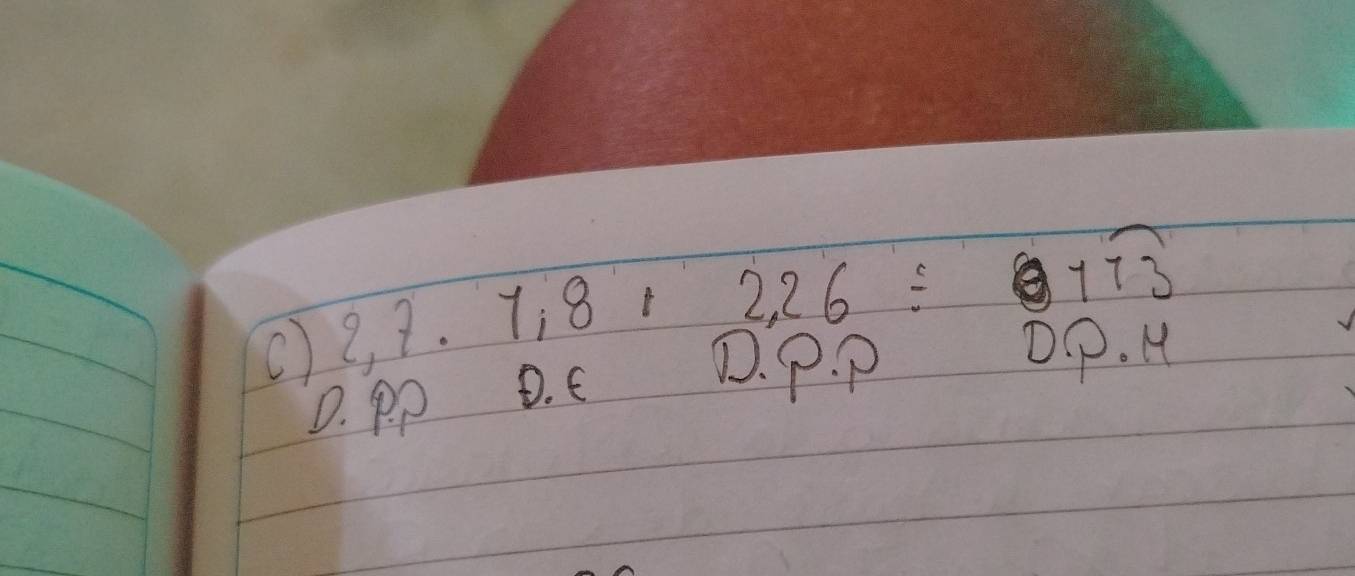 C) 2,7. 1,8 , 2,26 ÷ 1,13
D.P.P D.E D.P.P D.P.M